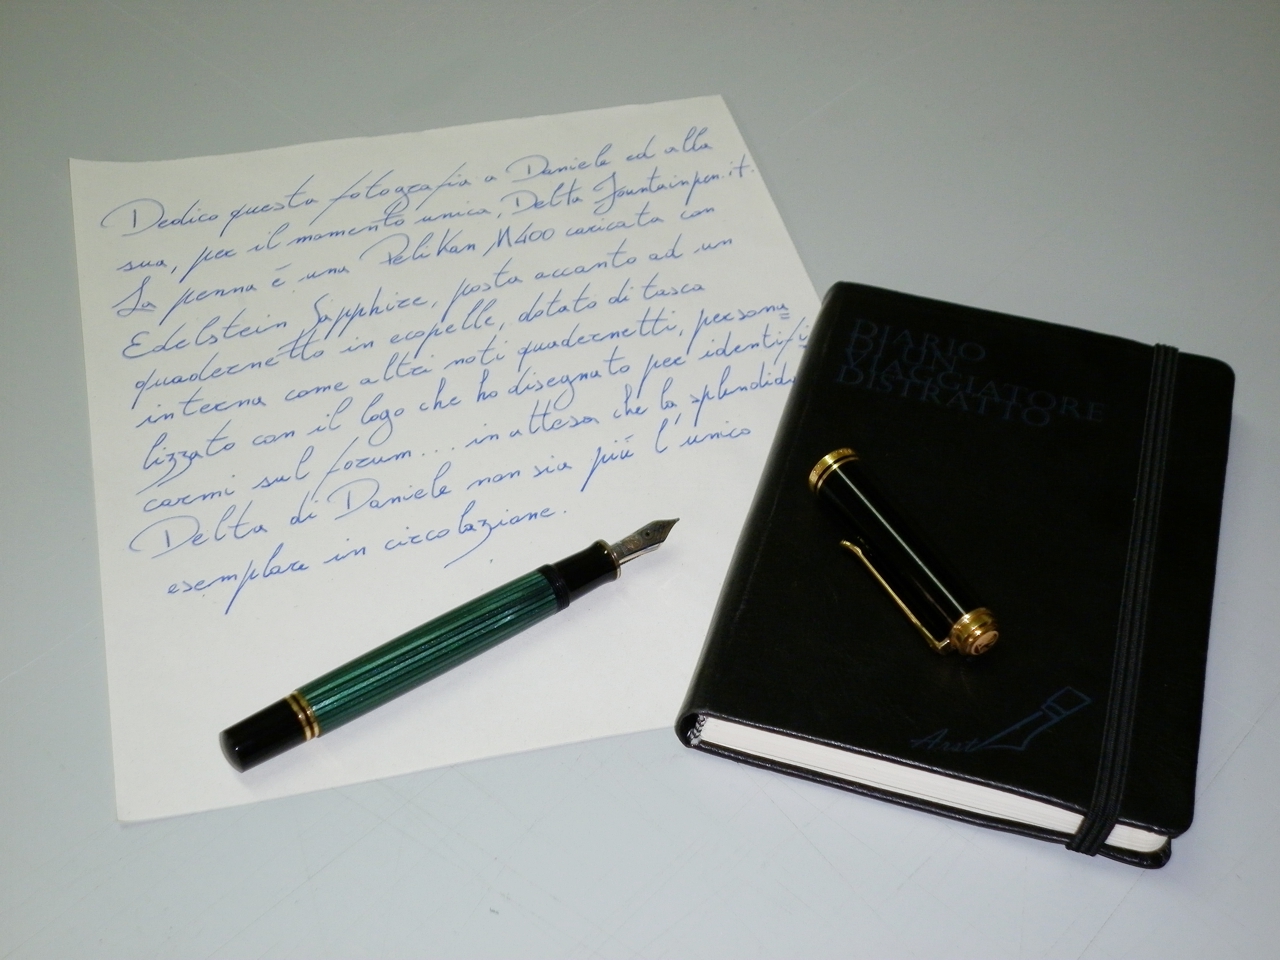 Dedico questa fotografia a Daniele ed alla
sua, per il momento unica, Delta Fountainpen.it.
La penna é una Pelikan M400 caricata con
Edelstein Sapphire, posta accanto ad un
quadernetto in ecopelle, dotato di tasca
interna come altri noti quadernetti, persona=
lizzato con il logo che ho disegnato per identifi=
carmi sul forum... in attesa che la splendida
Delta di Daniele non sia piú l'unico
esemplare in circolazione.
DIARIO
DI UN
VIAGGIATORE
DISTRATTO